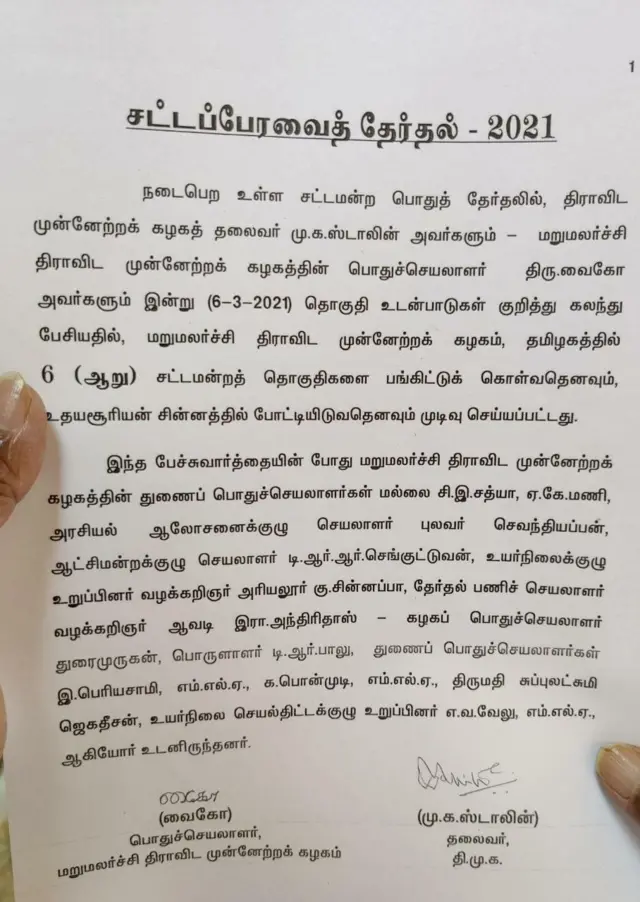 1
சட்டப்பேரவைத் தேர்தல் - 2021
நடைபெற உள்ள சட்டமன்ற பொதுத் தேர்தலில், திராவிட
முன்னேற்றக் கழகத் தலைவர் மு.க.ஸ்டாலின் அவர்களும் – மறுமலர்ச்சி
திராவிட முன்னேற்றக் கழகத்தின் பொதுச்செயலாளர் திரு.வைகோ
அவர்களும் இன்று (6-3-2021) தொகுதி உடன்பாடுகள் குறித்து கலந்து
பேசியதில், மறுமலர்ச்சி திராவிட முன்னேற்றக் கழகம், தமிழகத்தில்
6 (ஆறு) சட்டமன்றத் தொகுதிகளை பங்கிட்டுக் கொள்வதெனவும்,
உதயசூரியன் சின்னத்தில் போட்டியிடுவதெனவும் முடிவு செய்யப்பட்டது.
இந்த பேச்சுவார்த்தையின் போது மறுமலர்ச்சி திராவிட முன்னேற்றக்
கழகத்தின் துணைப் பொதுச்செயலாளர்கள் மல்லை சி.இ.சத்யா, ஏ.கே.மணி,
அரசியல் ஆலோசனைக்குழு செயலாளர் புலவர் செவந்தியப்பன்,
ஆட்சிமன்றக்குழு செயலாளர் டி.ஆர்.ஆர்.செங்குட்டுவன், உயர்நிலைக்குழு
உறுப்பினர் வழக்கறிஞர் அரியலூர் கு.சின்னப்பா, தேர்தல் பணிச் செயலாளர்
வழக்கறிஞர் ஆவடி இரா.அந்திரிதாஸ் – கழகப் பொதுச்செயலாளர்
துரைமுருகன், பொருளாளர் டி.ஆர்.பாலு, துணைப் பொதுச்செயலாளர்கள்
இ.பெரியசாமி, எம்.எல்.ஏ., க.பொன்முடி, எம்.எல்.ஏ., திருமதி சுப்புலட்சுமி
ஜெகதீசன், உயர்நிலை செயல்திட்டக்குழு உறுப்பினர் எ.வ.வேலு, எம்.எல்.ஏ.,
ஆகியோர் உடனிருந்தனர்.
வைகோ
(வைகோ)
பொதுச்செயலாளர்,
மறுமலர்ச்சி திராவிட முன்னேற்றக் கழகம்
(மு.க.ஸ்டாலின்)
தலைவர்,
தி.மு.க.